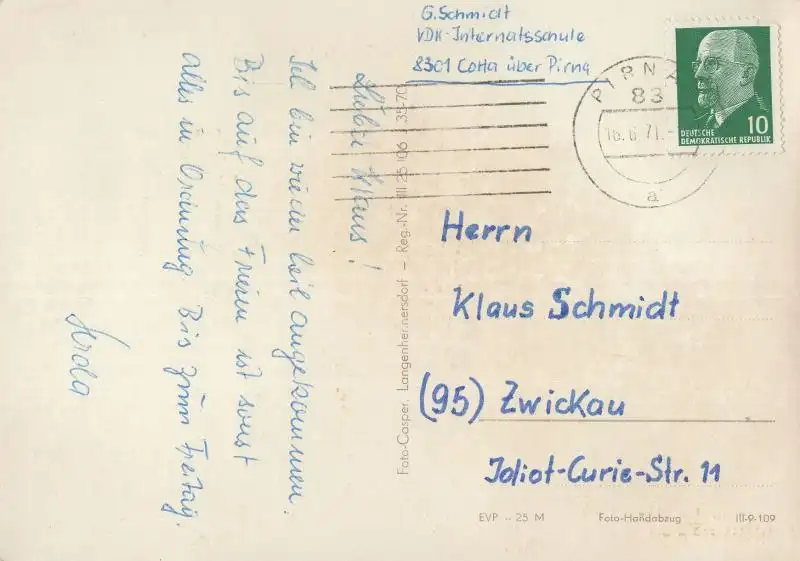 G. Schmidt
VDK-Internatsschule
8301 Cotta über Pirna
PIRNA
83
16.6.71.-
a
10
DEUTSCHE
DEMOKRATISCHE REPUBLIK
Lieber Klaus!
Ich bin wieder heil angekommen.
Bis auf das Frieren ist sonst
alles in Ordnung. Bis zum Freitag.
Foto-Casper, Langenhennersdorf – Reg.-Nr. III 25 106 35-70
Herrn
Klaus Schmidt
(95) Zwickau
Joliot-Curie-Str. 11
EVP – 25 M Foto-Handabzug III-9-109